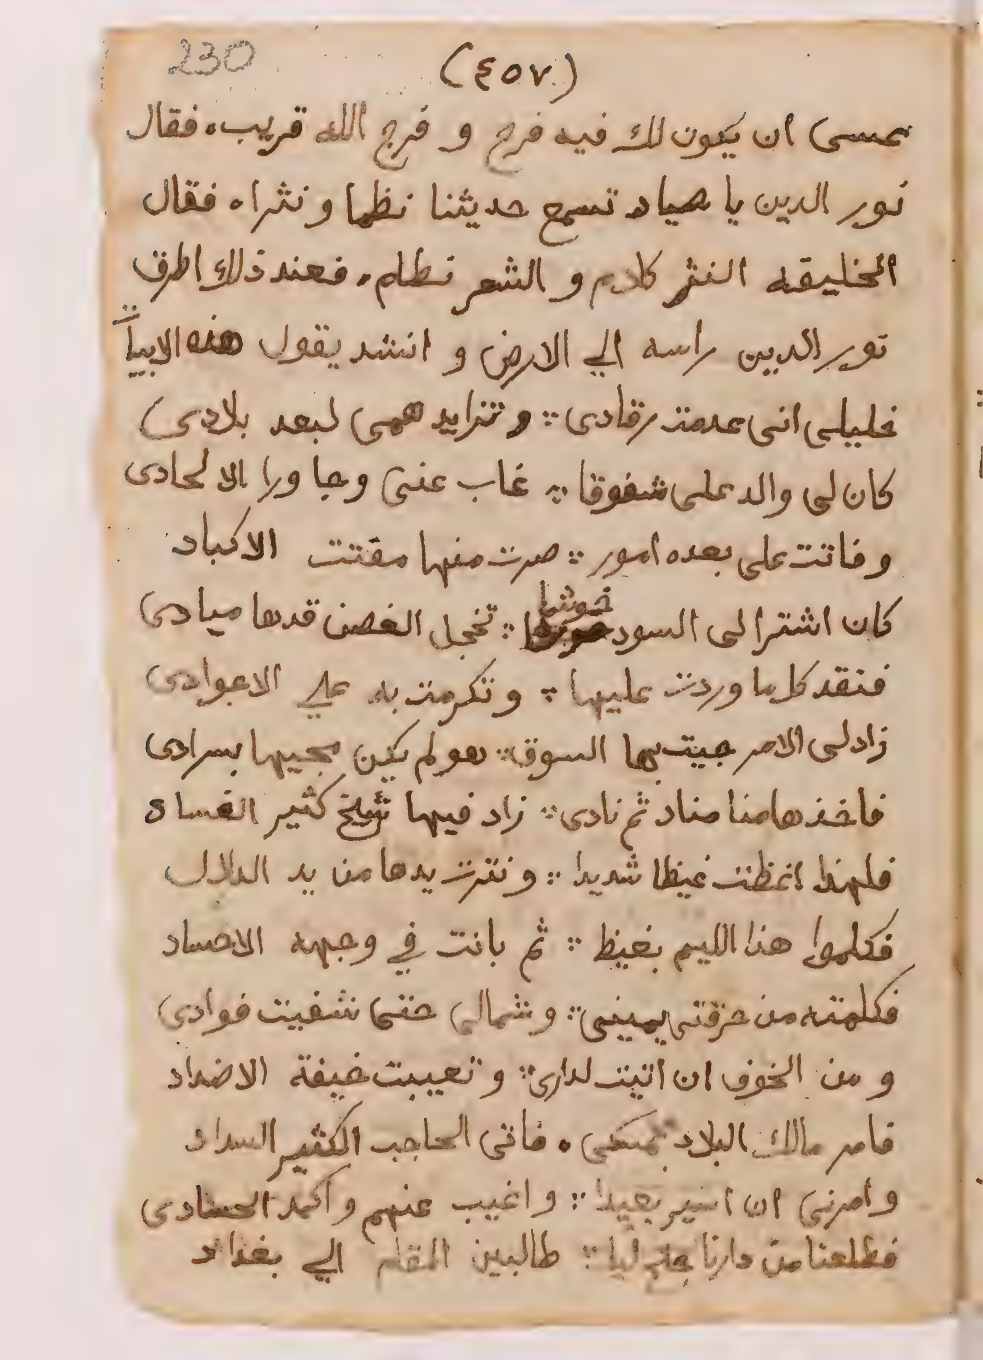 230
(٤٥٧)
عسى ان يكون لك فيه فرج و فرج الله قريب ، فقال
نور الدين يا صياد تسمع حديثنا نظما و نثرا ، فقال
الخليقه النثر كلام و الشعر نظام ، فعند ذلك اطرق
نور الدين راسه الي الارض و انشد يقول هذه الابيات
خليلى انى عدمت رقادى ؞ و تزايد همى لبعد بلادى
كان لى والد على شفوقا ؞ غاب عنى وجاورا الالحادى
وفاتت على بعده امور ؞ صرت منها مفتت الاكباد
كان اشترا لى السود خوشا ؞ تخجل الغصن قدها ميادى
فنقد كل ما وردت عليها ؞ و تكرمت به علي الاجوادى
زاد لى الامر جيت بها السوق ؞ هو لم يكن مجيها بسرادى
فاخذها منا مناد ثم نادى ؞ زاد فيها شيخ كثير الفساد
فلهذا اغظت غيظا شديدا ؞ و نترت يدها من يد الدلال
فكلموا هذا الليم بغيظ ؞ ثم بانت في وجهه الاحساد
فكلمته من حرقتى بيمينى ؞ و شمالى حتى شفيت فوادى
و من الخوف ان اتيت لدارى ؞ و تعيبت خيفة الاضداد
فامر مالك البلاد بمسكى ، فاتى الحاجب الكثير السداد
و امرنى ان اسير بعيدا ؞ و اغيب عنهم و اكمد الحسادى
فطلعنا من دارنا ؞ طالبين المقام الي بغداد